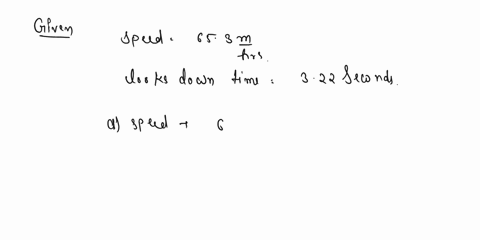 Given
Speed = 65.3 m/hrs.
looks down time = 3.22 Seconds.
a) speed → 6